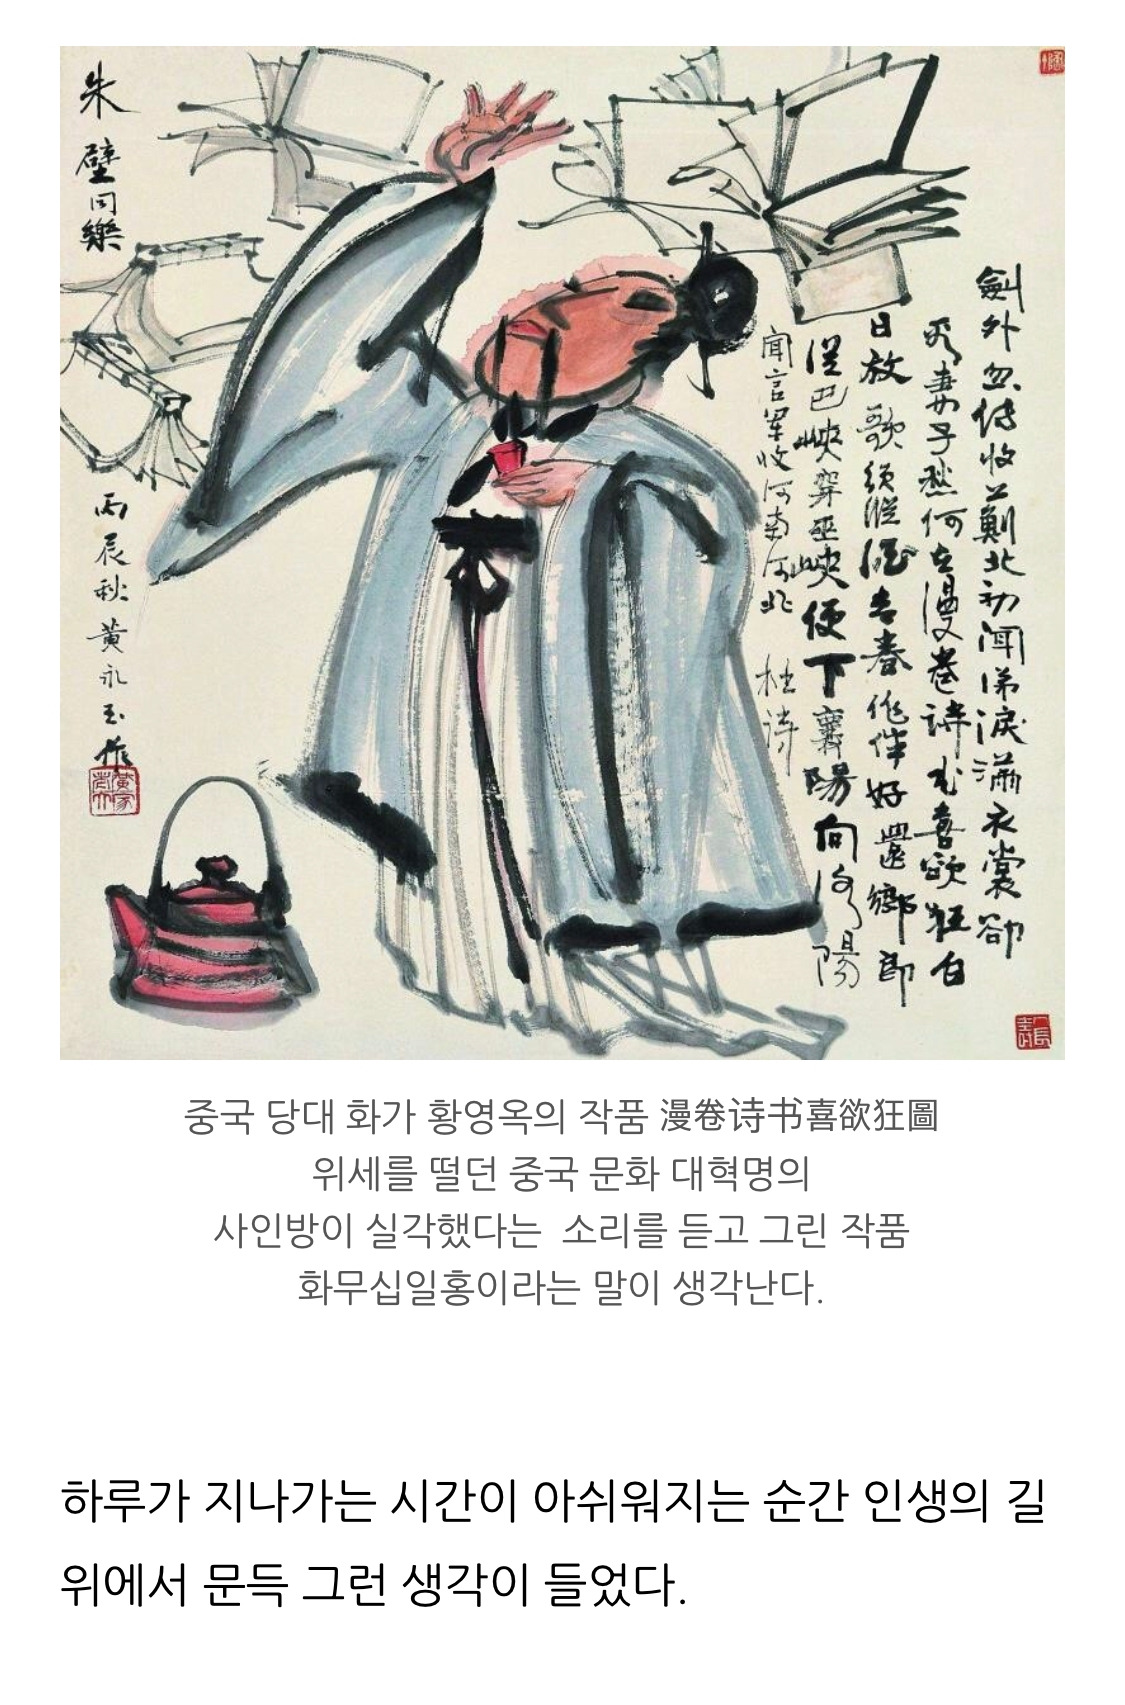 朱壁同樂
劍外忽傳收薊北初聞涕淚滿衣裳卻
看妻子愁何在漫卷詩书喜欲狂白
日放歌須縱酒青春作伴好還鄉即
從巴峽穿巫峽便下襄陽向洛陽
聞官軍收河南河北 杜詩
丙辰秋黄永玉作
중국 당대 화가 황영옥의 작품 漫卷诗书喜欲狂圖
위세를 떨던 중국 문화 대혁명의
사인방이 실각했다는 소리를 듣고 그린 작품
화무십일홍이라는 말이 생각난다.
하루가 지나가는 시간이 아쉬워지는 순간 인생의 길
위에서 문득 그런 생각이 들었다.